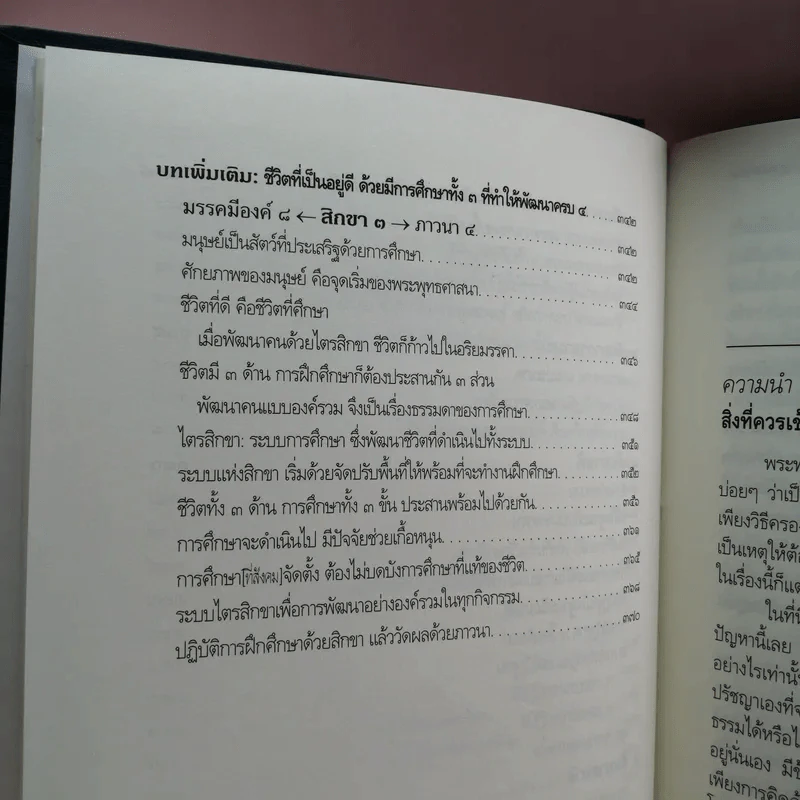 บทเพิ่มเติม: ชีวิตที่เป็นอยู่ดี ด้วยมีการศึกษาทั้ง ๓ ที่ทำให้พัฒนาครบ ๔..... ๓๔๒
มรรคมีองค์ ๘ ← สิกขา ๓ → ภาวนา ๔........................ ๓๔๒
มนุษย์เป็นสัตว์ที่ประเสริฐด้วยการศึกษา........................ ๓๔๒
ศักยภาพของมนุษย์ คือจุดเริ่มของพระพุทธศาสนา.................. ๓๔๔
ชีวิตที่ดี คือชีวิตที่ศึกษา
เมื่อพัฒนาคนด้วยไตรสิกขา ชีวิตก็ก้าวไปในอริยมรรคา............... ๓๔๖
ชีวิตมี ๓ ด้าน การฝึกศึกษาก็ต้องประสานกัน ๓ ส่วน
พัฒนาคนแบบองค์รวม จึงเป็นเรื่องธรรมดาของการศึกษา............. ๓๔๘
ไตรสิกขา: ระบบการศึกษา ซึ่งพัฒนาชีวิตที่ดำเนินไปทั้งระบบ............ ๓๕๑
ระบบแห่งสิกขา เริ่มด้วยจัดปรับพื้นที่ให้พร้อมที่จะทำงานฝึกศึกษา......... ๓๕๒
ชีวิตทั้ง ๓ ด้าน การศึกษาทั้ง ๓ ขั้น ประสานพร้อมไปด้วยกัน............ ๓๕๖
การศึกษาจะดำเนินไป มีปัจจัยช่วยเกื้อหนุน....................... ๓๖๑
การศึกษา[ที่สังคม]จัดตั้ง ต้องไม่บดบังการศึกษาที่แท้ของชีวิต............ ๓๖๕
ระบบไตรสิกขาเพื่อการพัฒนาอย่างองค์รวมในทุกกิจกรรม.............. ๓๖๘
ปฏิบัติการฝึกศึกษาด้วยสิกขา แล้ววัดผลด้วยภาวนา.................. ๓๗๐
ความนำ
สิ่งที่ควร
บ่อยๆ ว่าเป็
เพียงวิธีครอง
เป็นเหตุให้ต้อ
ในเรื่องนี้ก็แต
ในที่นี้
ปัญหานี้เลย
อย่างไรเท่านั้น
ปรัชญาเองที่จ
ธรรมได้หรือไ
อยู่นั่นเอง
เพียงการคิด